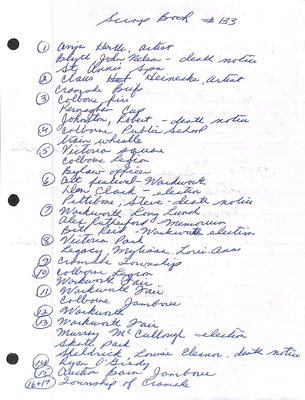 Scrap Book # 133
① Anja Hertle, artist
Blyth John Nelson - death notice
St. Anne's Spa
② Claus Heinecke, artist
Cramahe Brief
③ Colborne fire
Cup
Johnston, Robert - death notice
④ Colborne, Public School
train whistle
⑤ Victoria Square
Colborne Legion
Bylaw officer
⑥ Abc festival Warkworth
Don Clark - election
Pettibone, Steve - death notice
⑦ Warkworth Long Lunch
Alec Rutherford Memorium
Bill Reid - Warkworth election
⑧ Victoria Park
Legacy, Lori-Ann
⑨ Cramahe Township
⑩ Colborne Legion
Warkworth Fair
⑪ Warkworth Fair
Colborne Jamboree
⑫ Warkworth
⑬ Warkworth Fair
Murray McCullough - election
Skate Park
Sheldrick, Louise Eleanor, death notice
⑭ Ryan O'Grady
⑮ Auction Barn Jamboree
16+17 Township of Cramahe